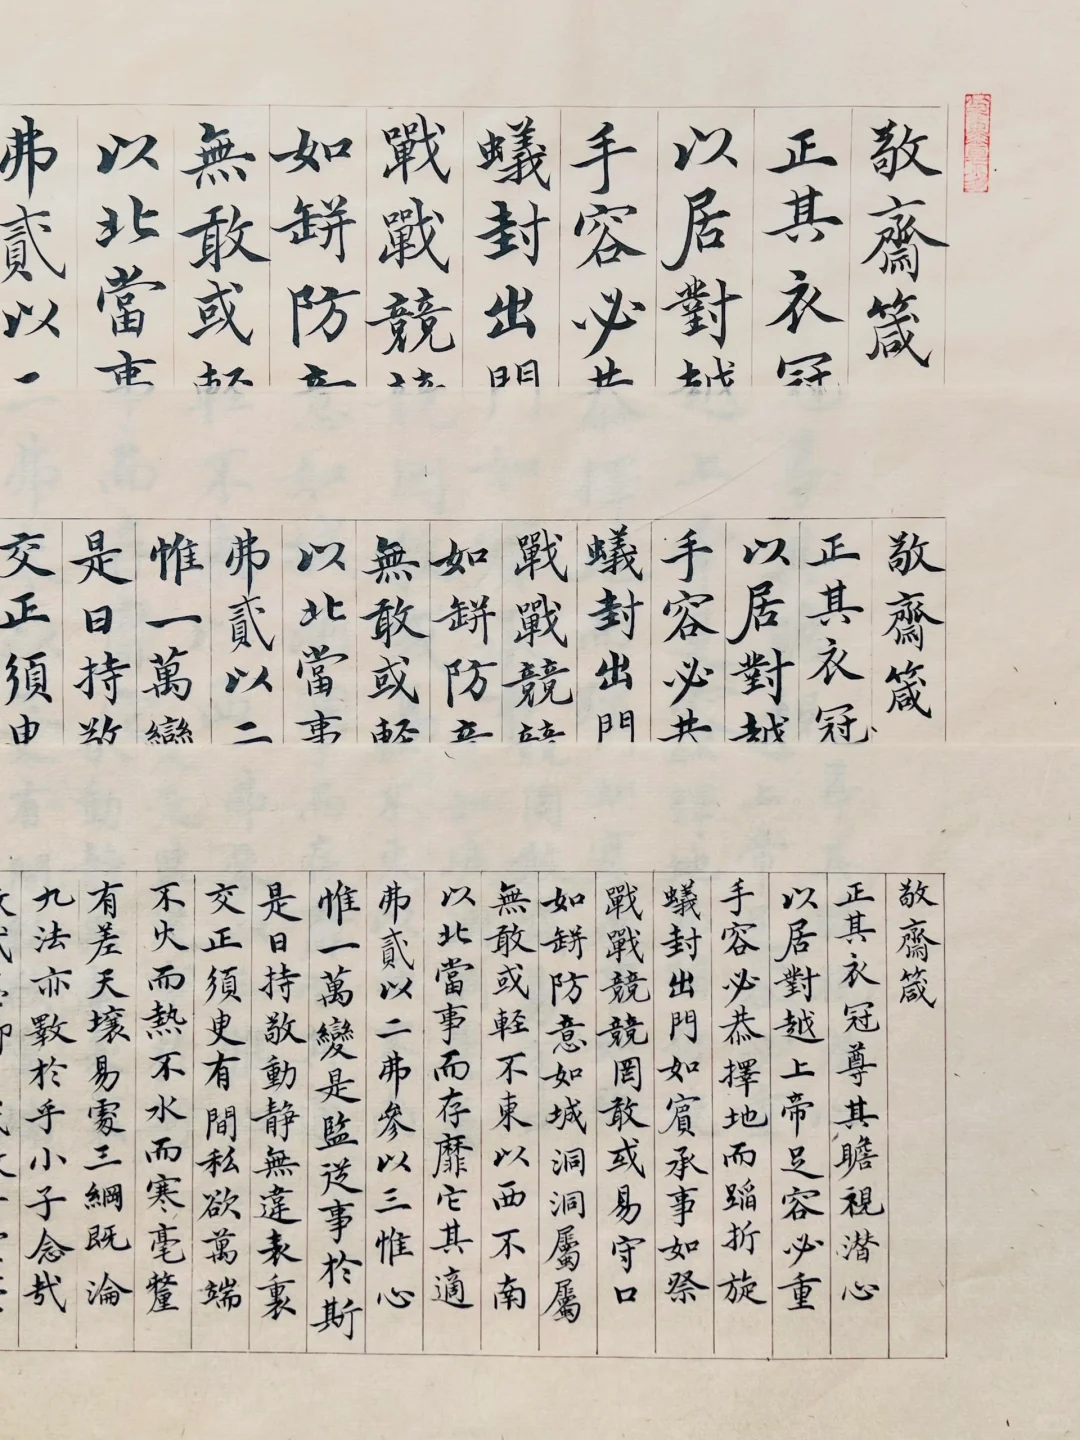 敬齋箴
正其衣冠
以居對越
手容必恭
蟻封出門
戰戰競競
如缾防意
無敢或輕
以北當事
弗貳以二
敬齋箴
正其衣冠
以居對越
手容必恭
蟻封出門
戰戰競競
如缾防意
無敢或輕
以北當事
弗貳以二
惟一萬變
是日持敬
交正須臾
敬齋箴
正其衣冠尊其瞻視潛心
以居對越上帝足容必重
手容必恭擇地而蹈折旋
蟻封出門如賓承事如祭
戰戰競競罔敢或易守口
如缾防意如城洞洞屬屬
無敢或輕不東以西不南
以北當事而存靡它其適
弗貳以二弗參以三惟心
惟一萬變是監從事於斯
是日持敬動静無違表裏
交正須臾有間私欲萬端
不火而熱不水而寒毫釐
有差天壤易處三綱既淪
九法亦斁於乎小子念哉